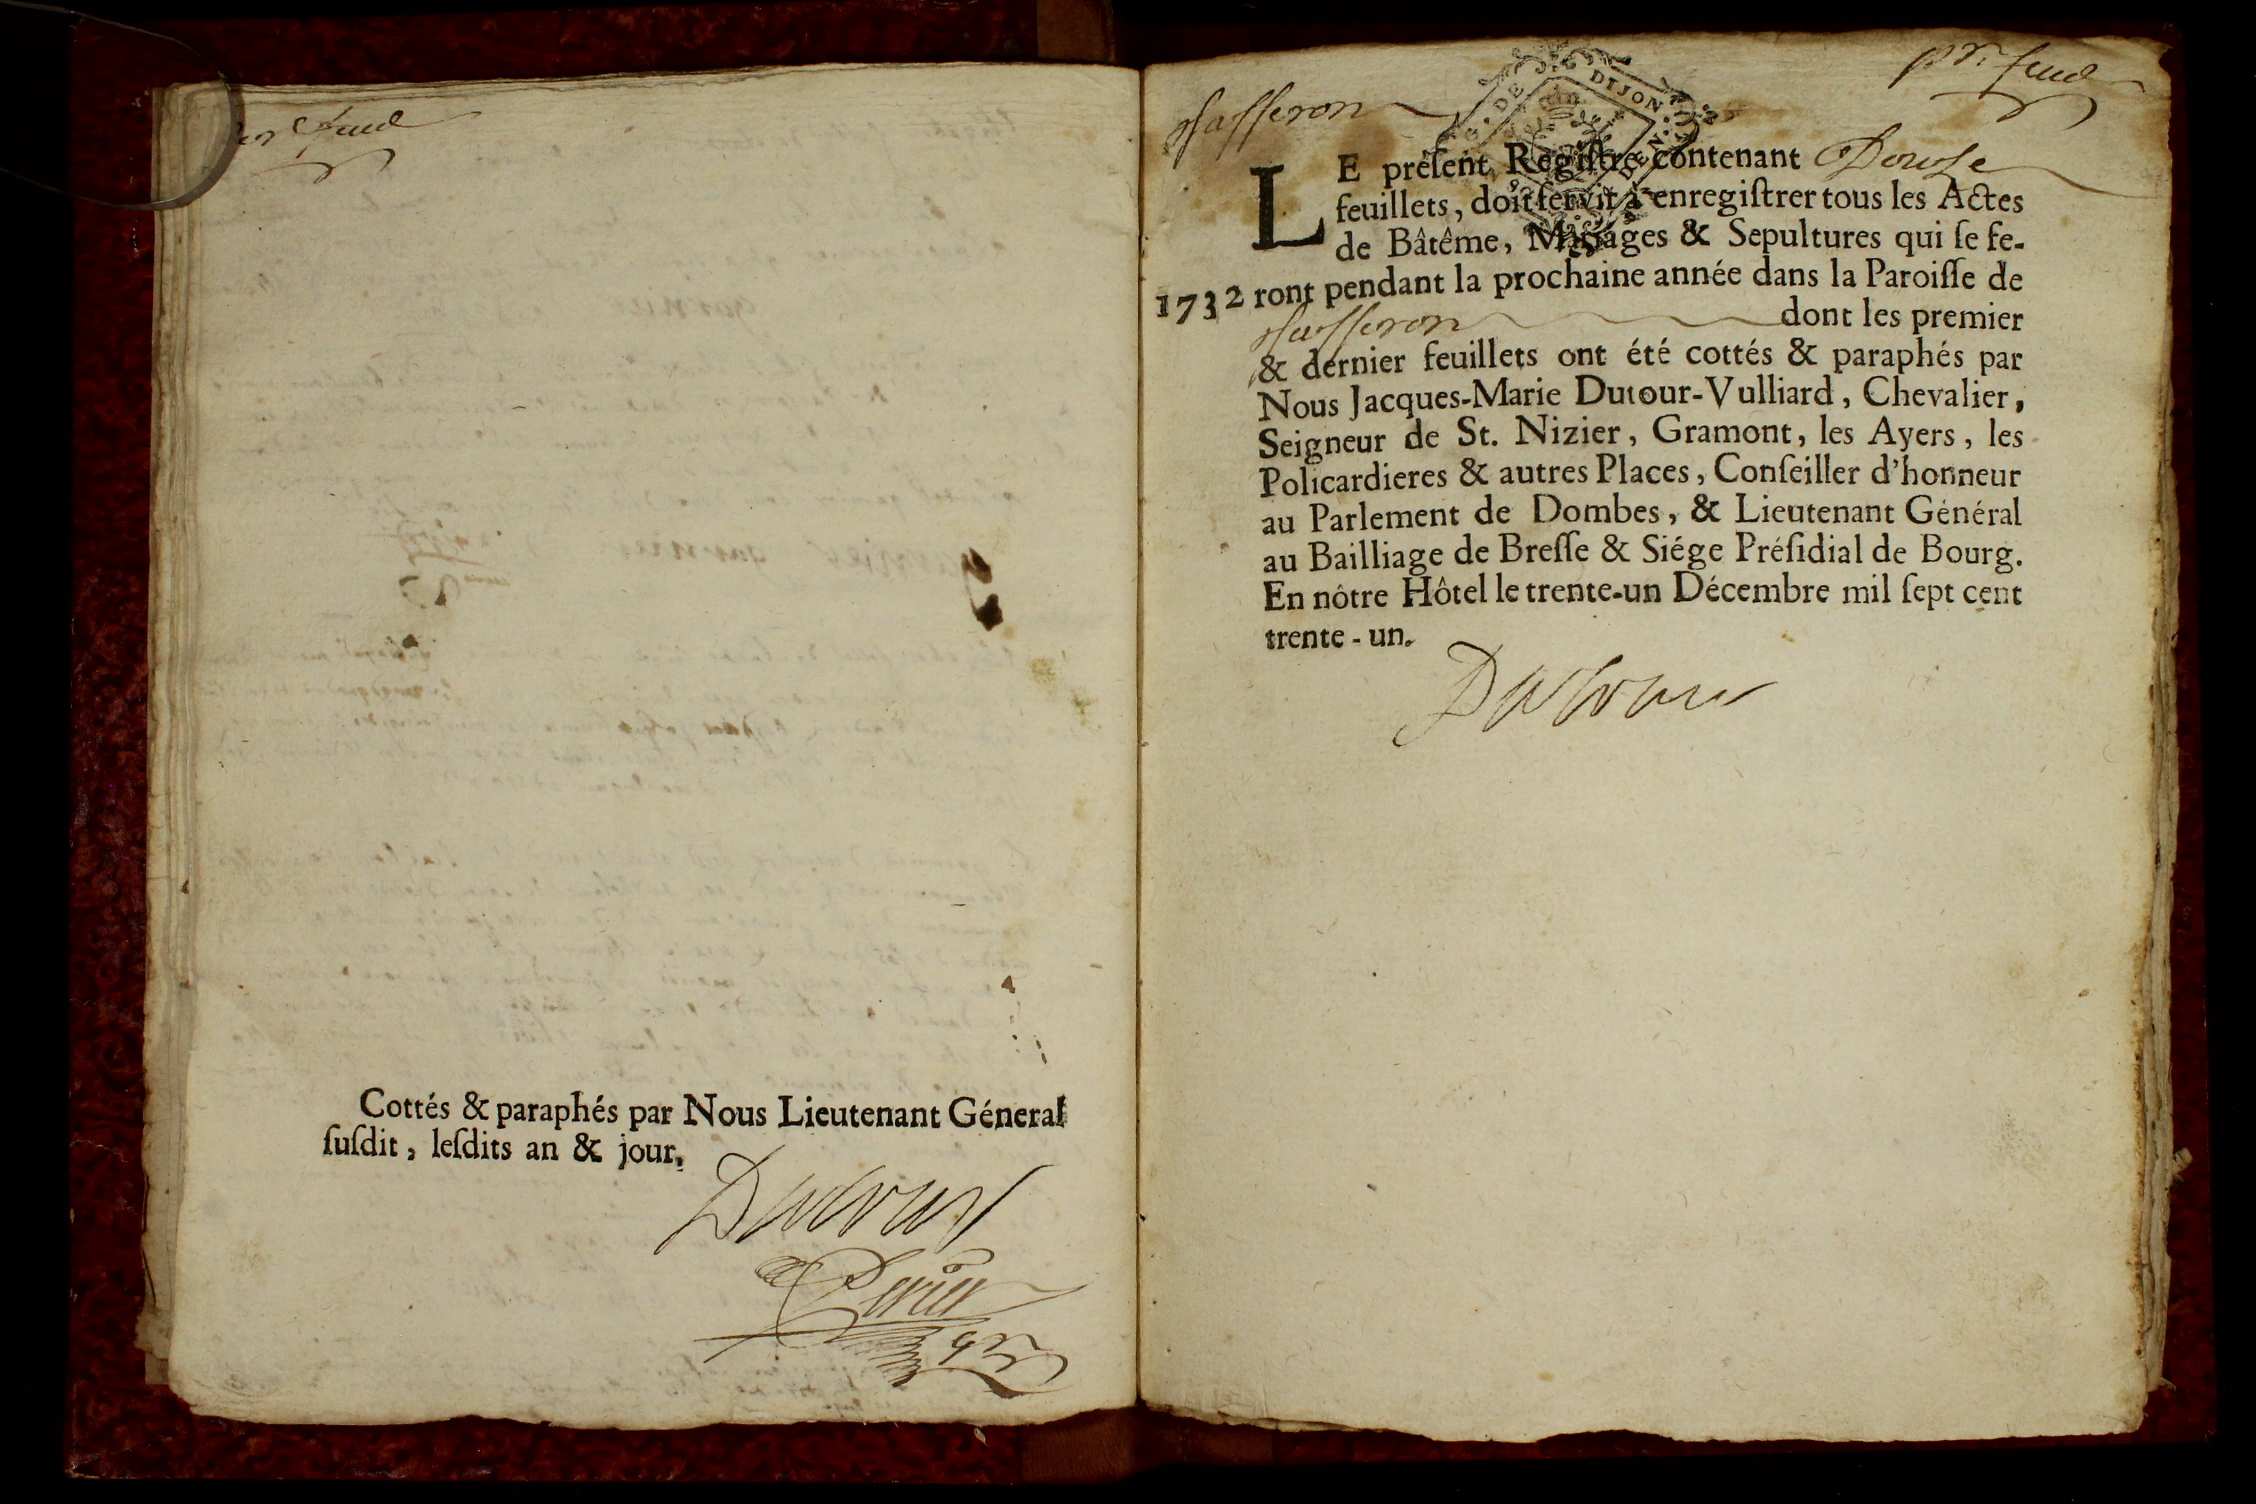 feuil
Cottés & paraphés par Nous Lieutenant Géneral
ſuſdit, leſdits an & jour.
Dutour
Perier
pr. feuil
DE DIJON
LE préſent Regiſtre contenant Douze
feuillets, doit ſervir à enregiſtrer tous les Actes
de Bâtême, Mariages & Sepultures qui ſe fe-
1732 ront pendant la prochaine année dans la Paroiſſe de
dont les premier
& dernier feuillets ont été cottés & paraphés par
Nous Jacques-Marie Dutour-Vulliard, Chevalier,
Seigneur de St. Nizier, Gramont, les Ayers, les
Policardieres & autres Places, Conſeiller d'honneur
au Parlement de Dombes, & Lieutenant Général
au Bailliage de Breſſe & Siége Préſidial de Bourg.
En nôtre Hôtel le trente-un Décembre mil ſept cent
trente-un.
Dutour